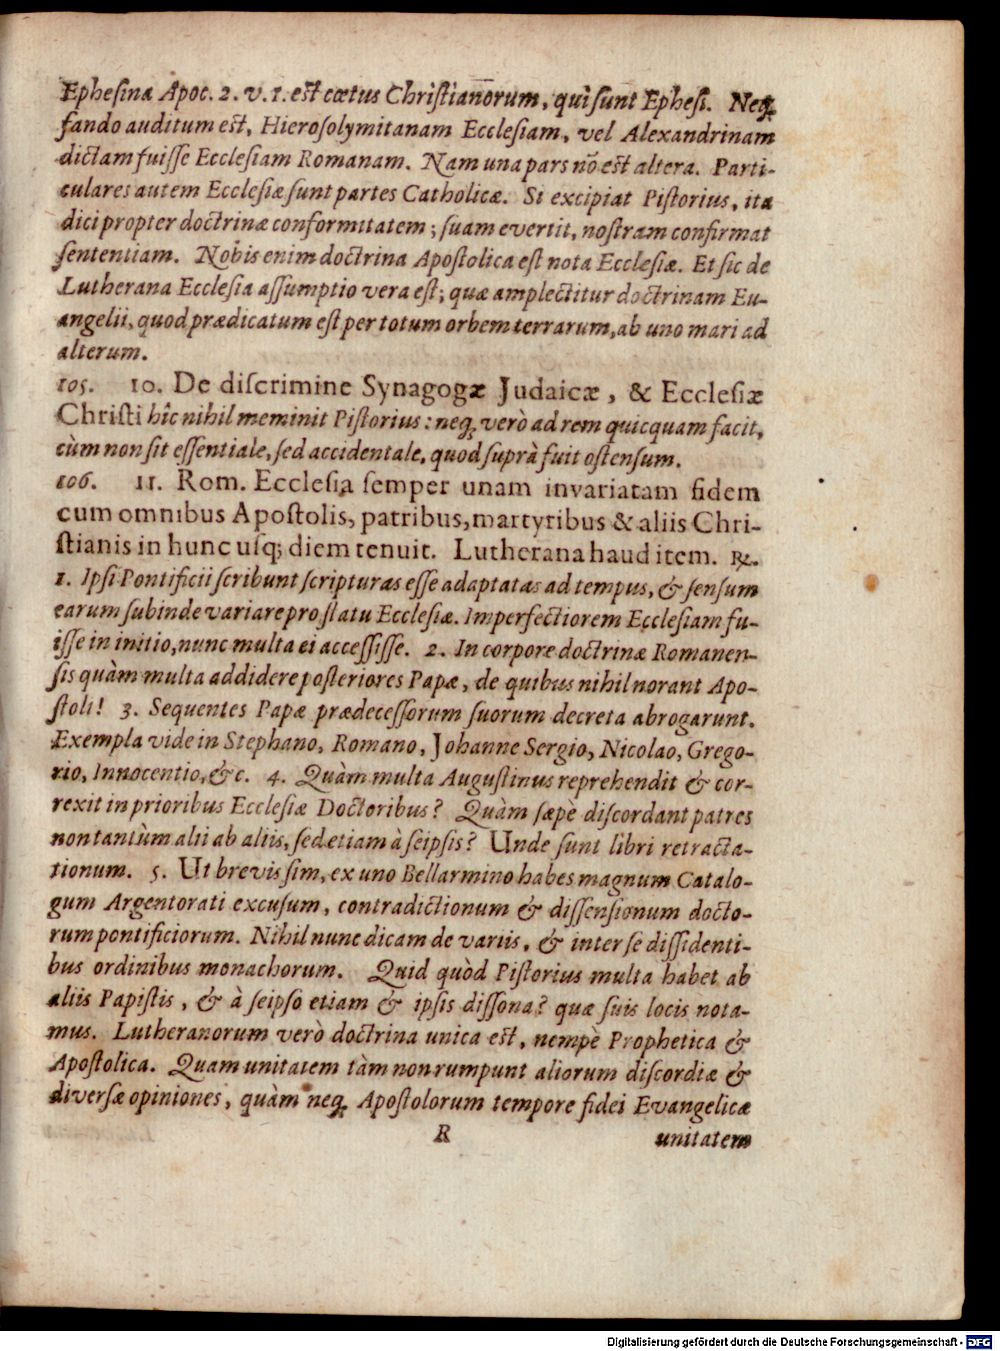 Ephesinæ Apoc. 2. v. 1. est cœtus Christianorum, qui sunt Ephesi. Neq;
fando auditum est, Hierosolymitanam Ecclesiam, vel Alexandrinam
dictam fuisse Ecclesiam Romanam. Nam una pars nō est altera. Parti-
culares autem Ecclesiæ sunt partes Catholicæ. Si excipiat Pistorius, ita
dici propter doctrinæ conformitatem; suam evertit, nostram confirmat
sententiam. Nobis enim doctrina Apostolica est nota Ecclesiæ. Et sic de
Lutherana Ecclesia assumptio vera est; quæ amplectitur doctrinam Eu-
angelii, quod prædicatum est per totum orbem terrarum, ab uno mari ad
alterum.
105. 10. De discrimine Synagogæ Judaicæ, & Ecclesiæ
Christi hîc nihil meminit Pistorius: neq; verò ad rem quicquam facit,
cùm non sit essentiale, sed accidentale, quod suprà fuit ostensum.
106. 11. Rom. Ecclesia semper unam invariatam fidem
cum omnibus Apostolis, patribus, martyribus & aliis Chri-
stianis in hunc usq; diem tenuit. Lutherana haud item. ℞.
1. Ipsi Pontificii scribunt scripturas esse adaptatas ad tempus, & sensum
earum subinde variare pro statu Ecclesiæ. Imperfectiorem Ecclesiam fu-
isse in initio, nunc multa ei accessisse. 2. In corpore doctrinæ Romanen-
sis quàm multa addidere posteriores Papæ, de quibus nihil norant Apo-
stoli! 3. Sequentes Papæ prædecessorum suorum decreta abrogarunt.
Exempla vide in Stephano, Romano, Johanne Sergio, Nicolao, Grego-
rio, Innocentio, &c. 4. Quàm multa Augustinus reprehendit & cor-
rexit in prioribus Ecclesiæ Doctoribus? Quàm sæpè discordant patres
non tantùm alii ab aliis, sed etiam à seipsis? Unde sunt libri retracta-
tionum. 5. Ut brevis sim, ex uno Bellarmino habes magnum Catalo-
gum Argentorati excusum, contradictionum & dissensionum docto-
rum pontificiorum. Nihil nunc dicam de variis, & inter se dissidenti-
bus ordinibus monachorum. Quid quòd Pistorius multa habet ab
aliis Papistis, & à seipso etiam & ipsis dissona? quæ suis locis nota-
mus. Lutheranorum verò doctrina unica est, nempè Prophetica &
Apostolica. Quam unitatem tàm non rumpunt aliorum discordiæ &
diversæ opiniones, quàm neq; Apostolorum tempore fidei Evangelicæ
R unitatem
Digitalisierung gefördert durch die Deutsche Forschungsgemeinschaft - DFG